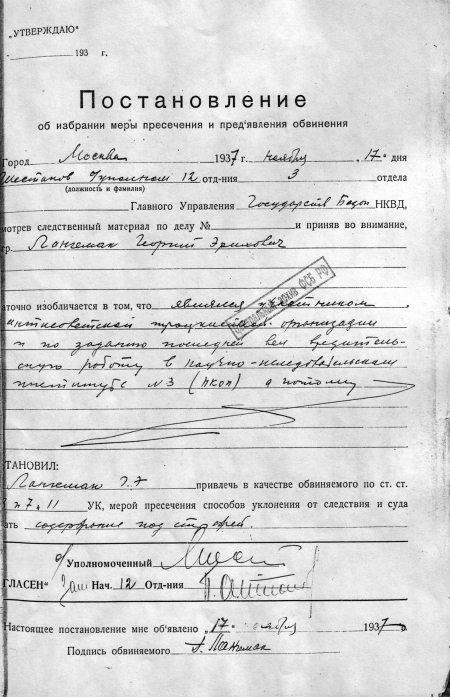 „УТВЕРЖДАЮ“
193 г.
Постановление
об избрании меры пресечения и пред'явления обвинения
Город Москва 1937 г. ноября 17 дня
12 отд-ния 3 отдела
(должность и фамилия)
Главного Управления Государств Безоп НКВД,
мотрев следственный материал по делу № и приняв во внимание,
гр. Лангемак Георгий Эрихович
аточно изобличается в том, что являлся участником
антисоветской троцкистской организации
и по заданию последней вел вредитель-
скую работу в научно-исследовательском
институте №3 (НКОП) а потому
ЦЕНТРАЛЬНЫЙ АРХИВ ФСБ РФ
ТАНОВИЛ:
Лангемак Г.Э. привлечь в качестве обвиняемого по ст. ст.
7 и 11 УК, мерой пресечения способов уклонения от следствия и суда
ать содержание под стражей.
Уполномоченный
ГЛАСЕН“ Нач. 12 Отд-ния
Настоящее постановление мне об'явлено „17“ ноября 1937 г.
Подпись обвиняемого Г. Лангемак